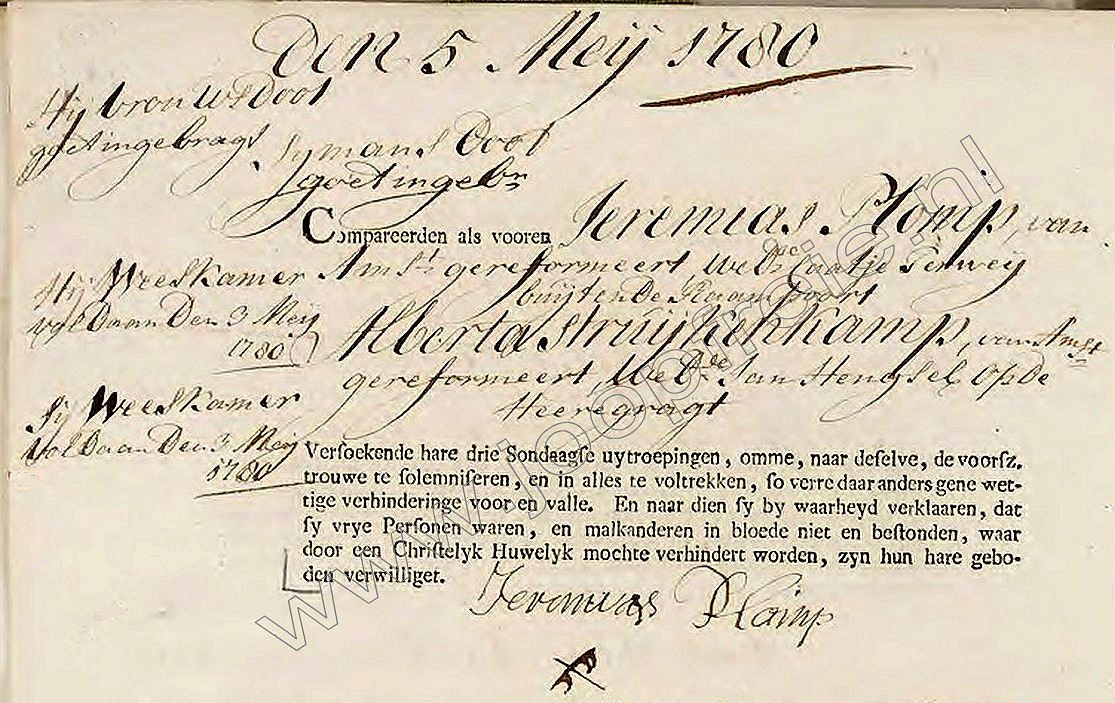 Den 5 Meij 1780
Hij vrouws Doot
goet ingebragt
Sy mans Doot
goet ingebr
Compareerden als vooren Jeremias Plomp, van
Amst gereformeert, Wedr Caatje Terwey
buijten De Raampoort
Hij Weeskamer
voldaan Den 3 Meij
1780
Alberta Struijkenkamp, van Amst
gereformeert, Wede Jan Hengsel op De
Heeregragt
Sij Weeskamer
Voldaan Den 3 Meij
1780
Versoekende hare drie Sondaagse uytroepingen, omme, naar deselve, de voorsz.
trouwe te solemniseren, en in alles te voltrekken, so verre daar anders gene wet-
tige verhinderinge voor en valle. En naar dien sy by waarheyd verklaaren, dat
sy vrye Personen waren, en malkanderen in bloede niet en bestonden, waar
door een Christelyk Huwelyk mochte verhindert worden, zyn hun hare gebo-
den verwilliget.
Jeremias Plomp
www.joopfrdie.nl